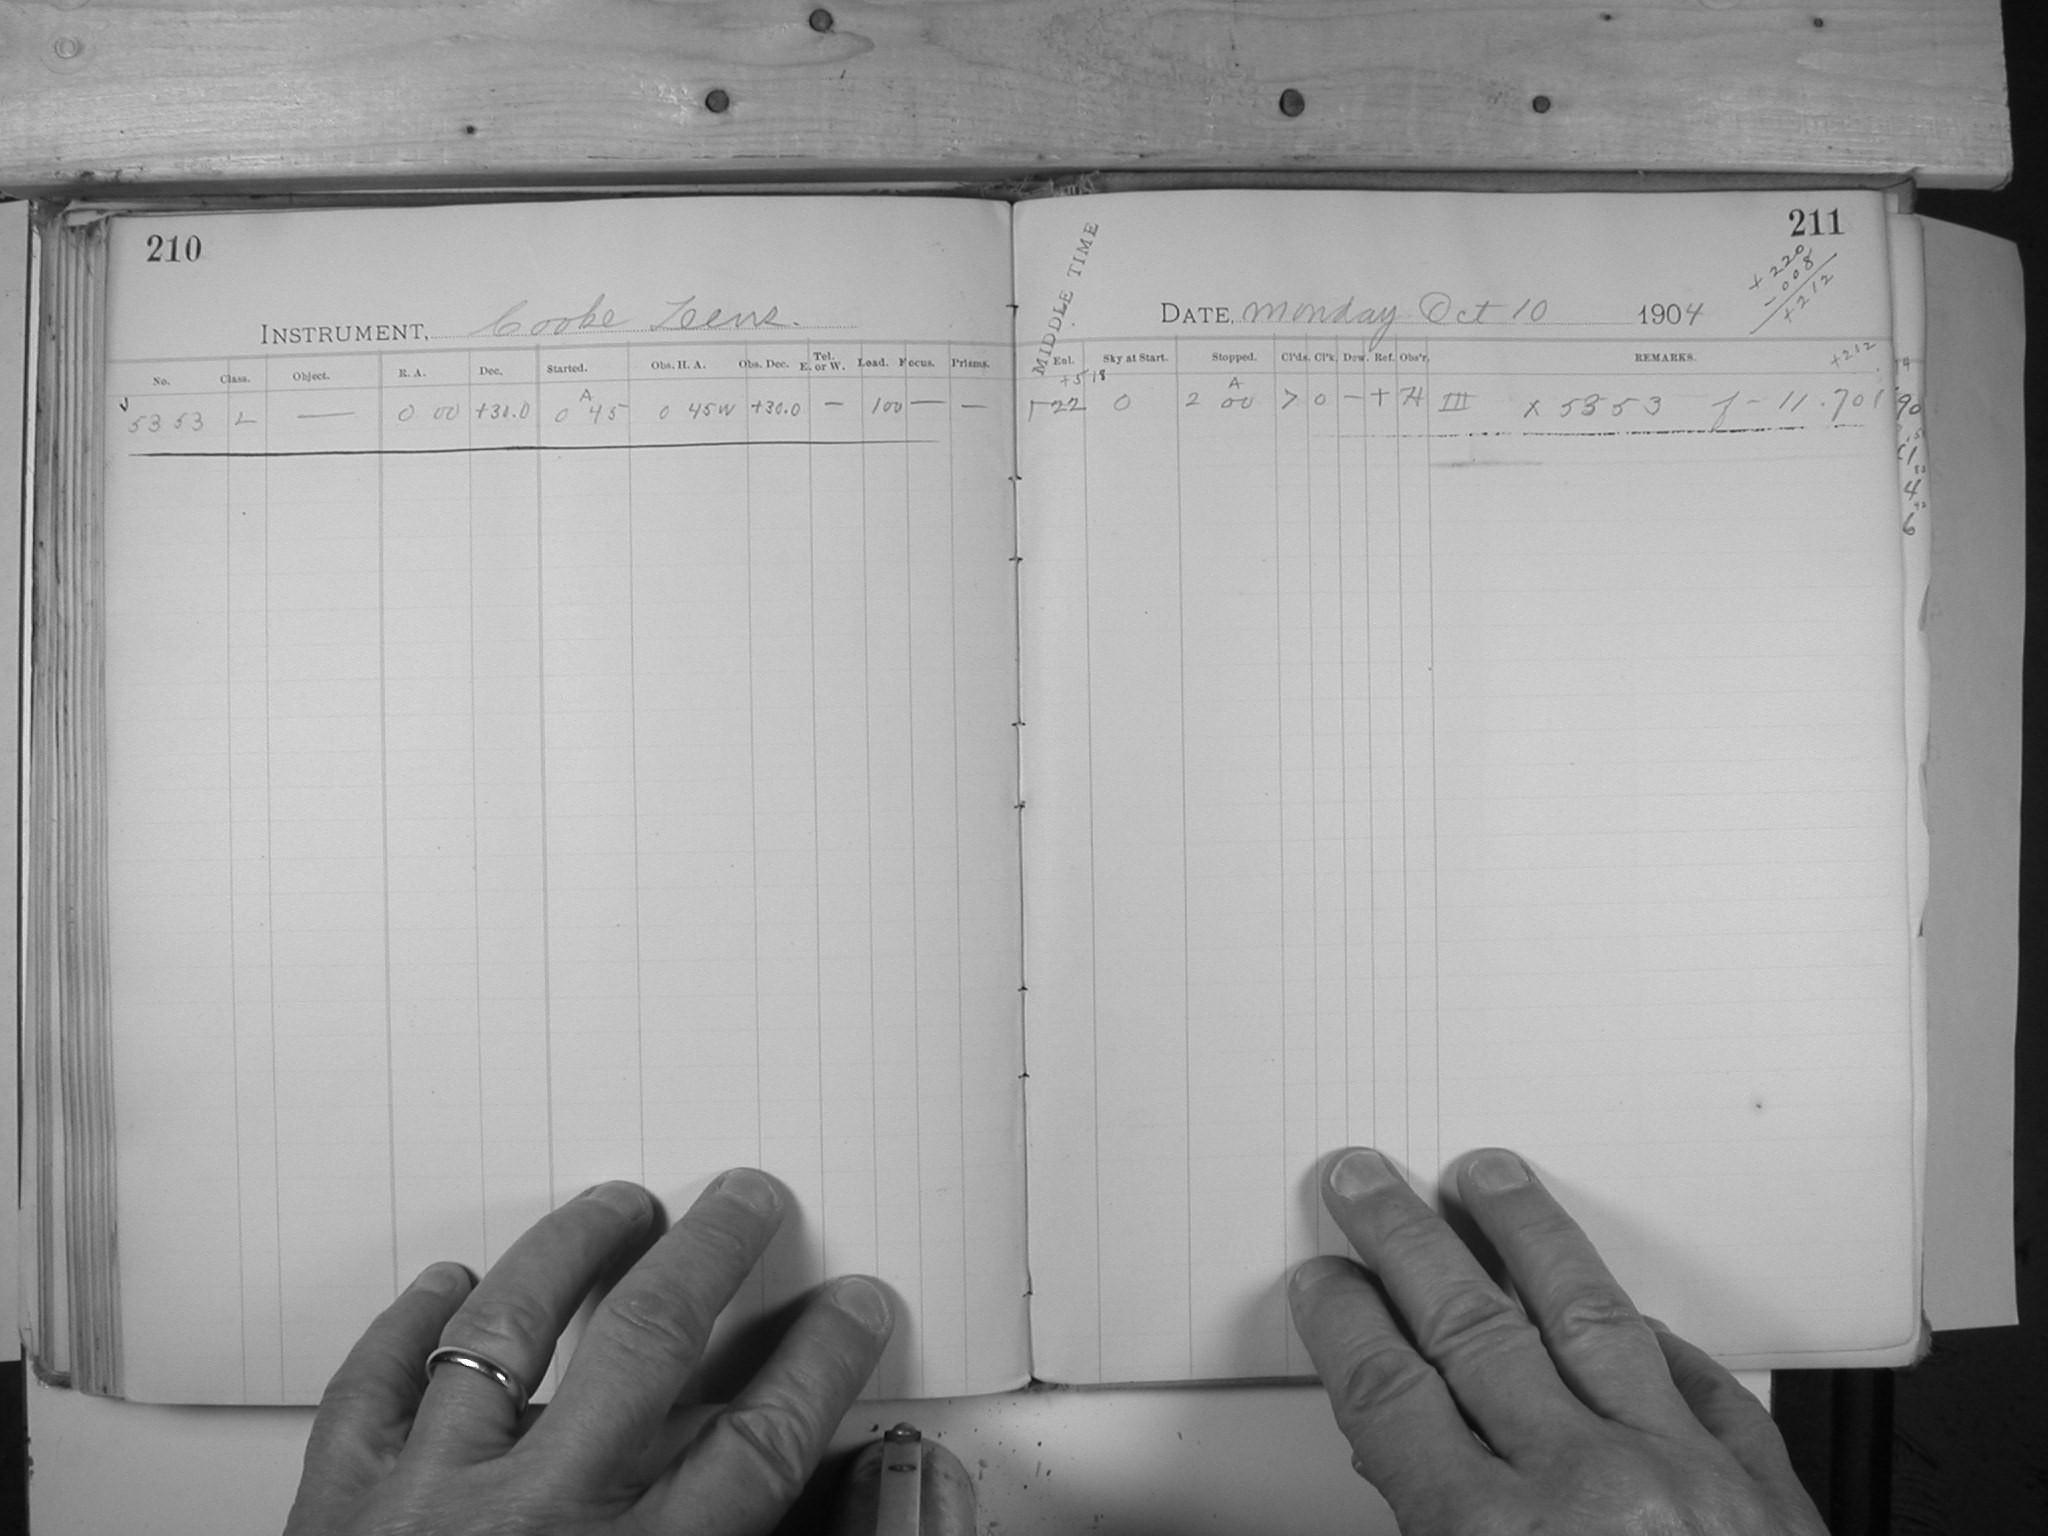 210
INSTRUMENT, Cooke Lens.
No. Class. Object. R. A. Dec. Started. Obs. H. A. Obs. Dec. Tel. E. or W. Load. Focus. Prisms.
5353 L — 0 00 +30.0 0 A 45 0 45W +30.0 — 100 — —
211
+220
-008
+212
MIDDLE TIME
DATE, Monday Oct 10 1904
Exl. Sky at Start. Stopped. Cl'ds. Cl'k. Dew. Ref. Obs'r. REMARKS.
+518 +212
1-22 0 2 A 00 > 0 - + H III x 5353 f - 11.701
90
4
6